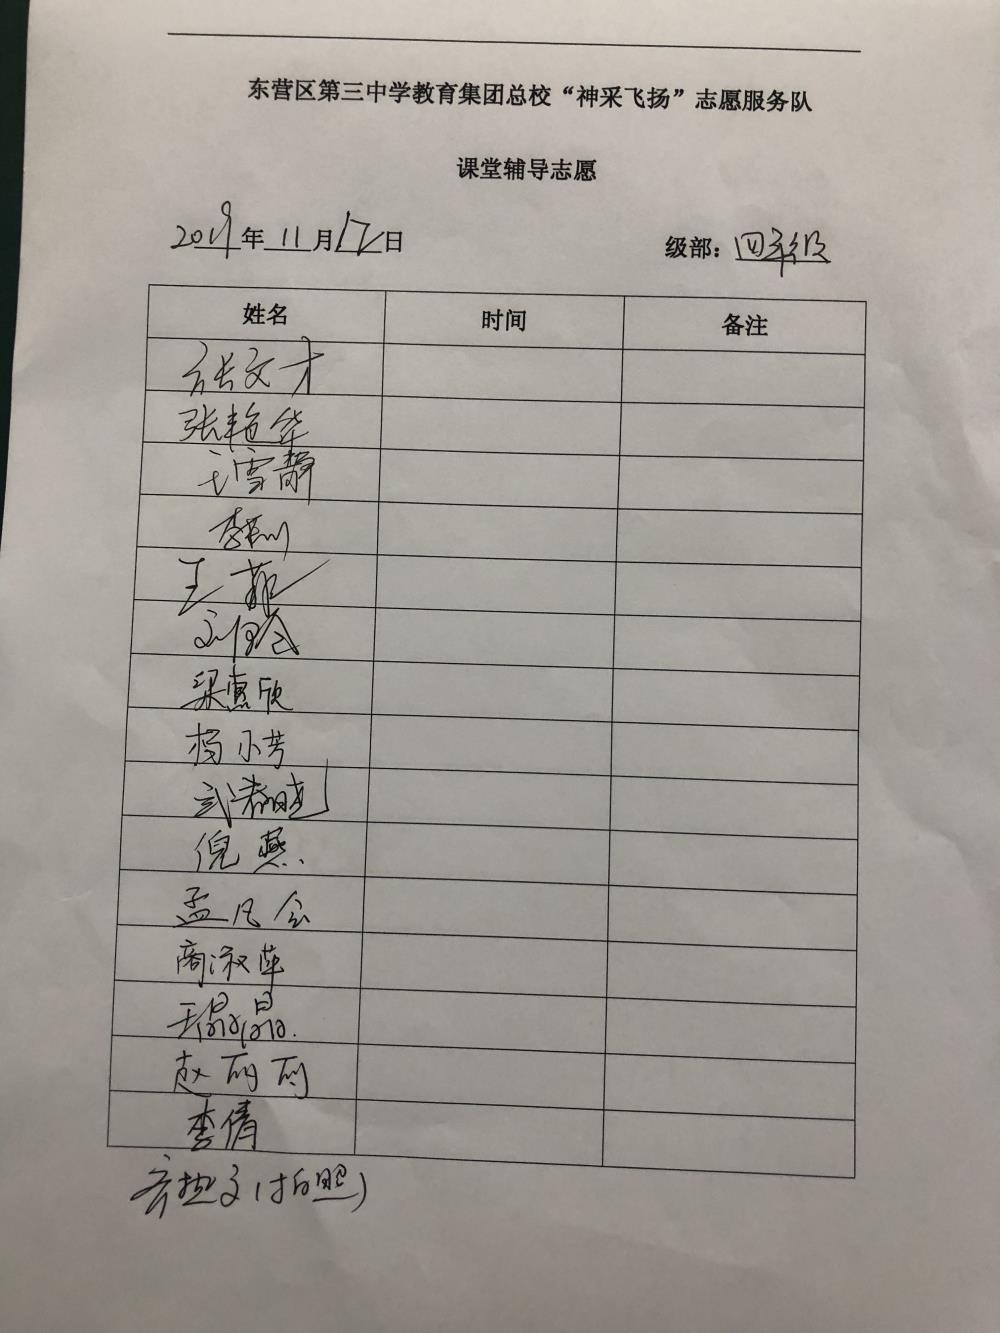 东营区第三中学教育集团总校“神采飞扬”志愿服务队
课堂辅导志愿
2019年11月12日 级部：四年级
姓名 时间 备注
张文才
张艳华
王雪静
李
王菲
刘
梁惠欣
杨小芳
武
倪燕
孟凡会
商淑萍
王晶晶
赵丽丽
李倩
(拍照)